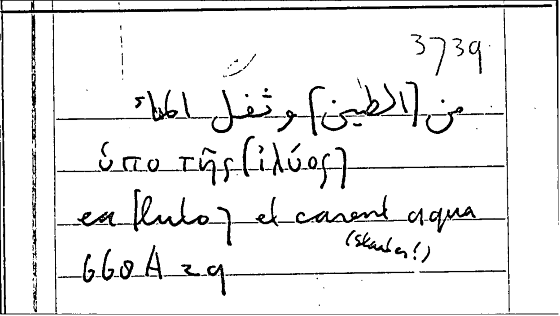 3739
من [الطين] وثفل الماء
ὑπο τῆς [ἰλύος]
ea [luto] et carent aqua
668A 29